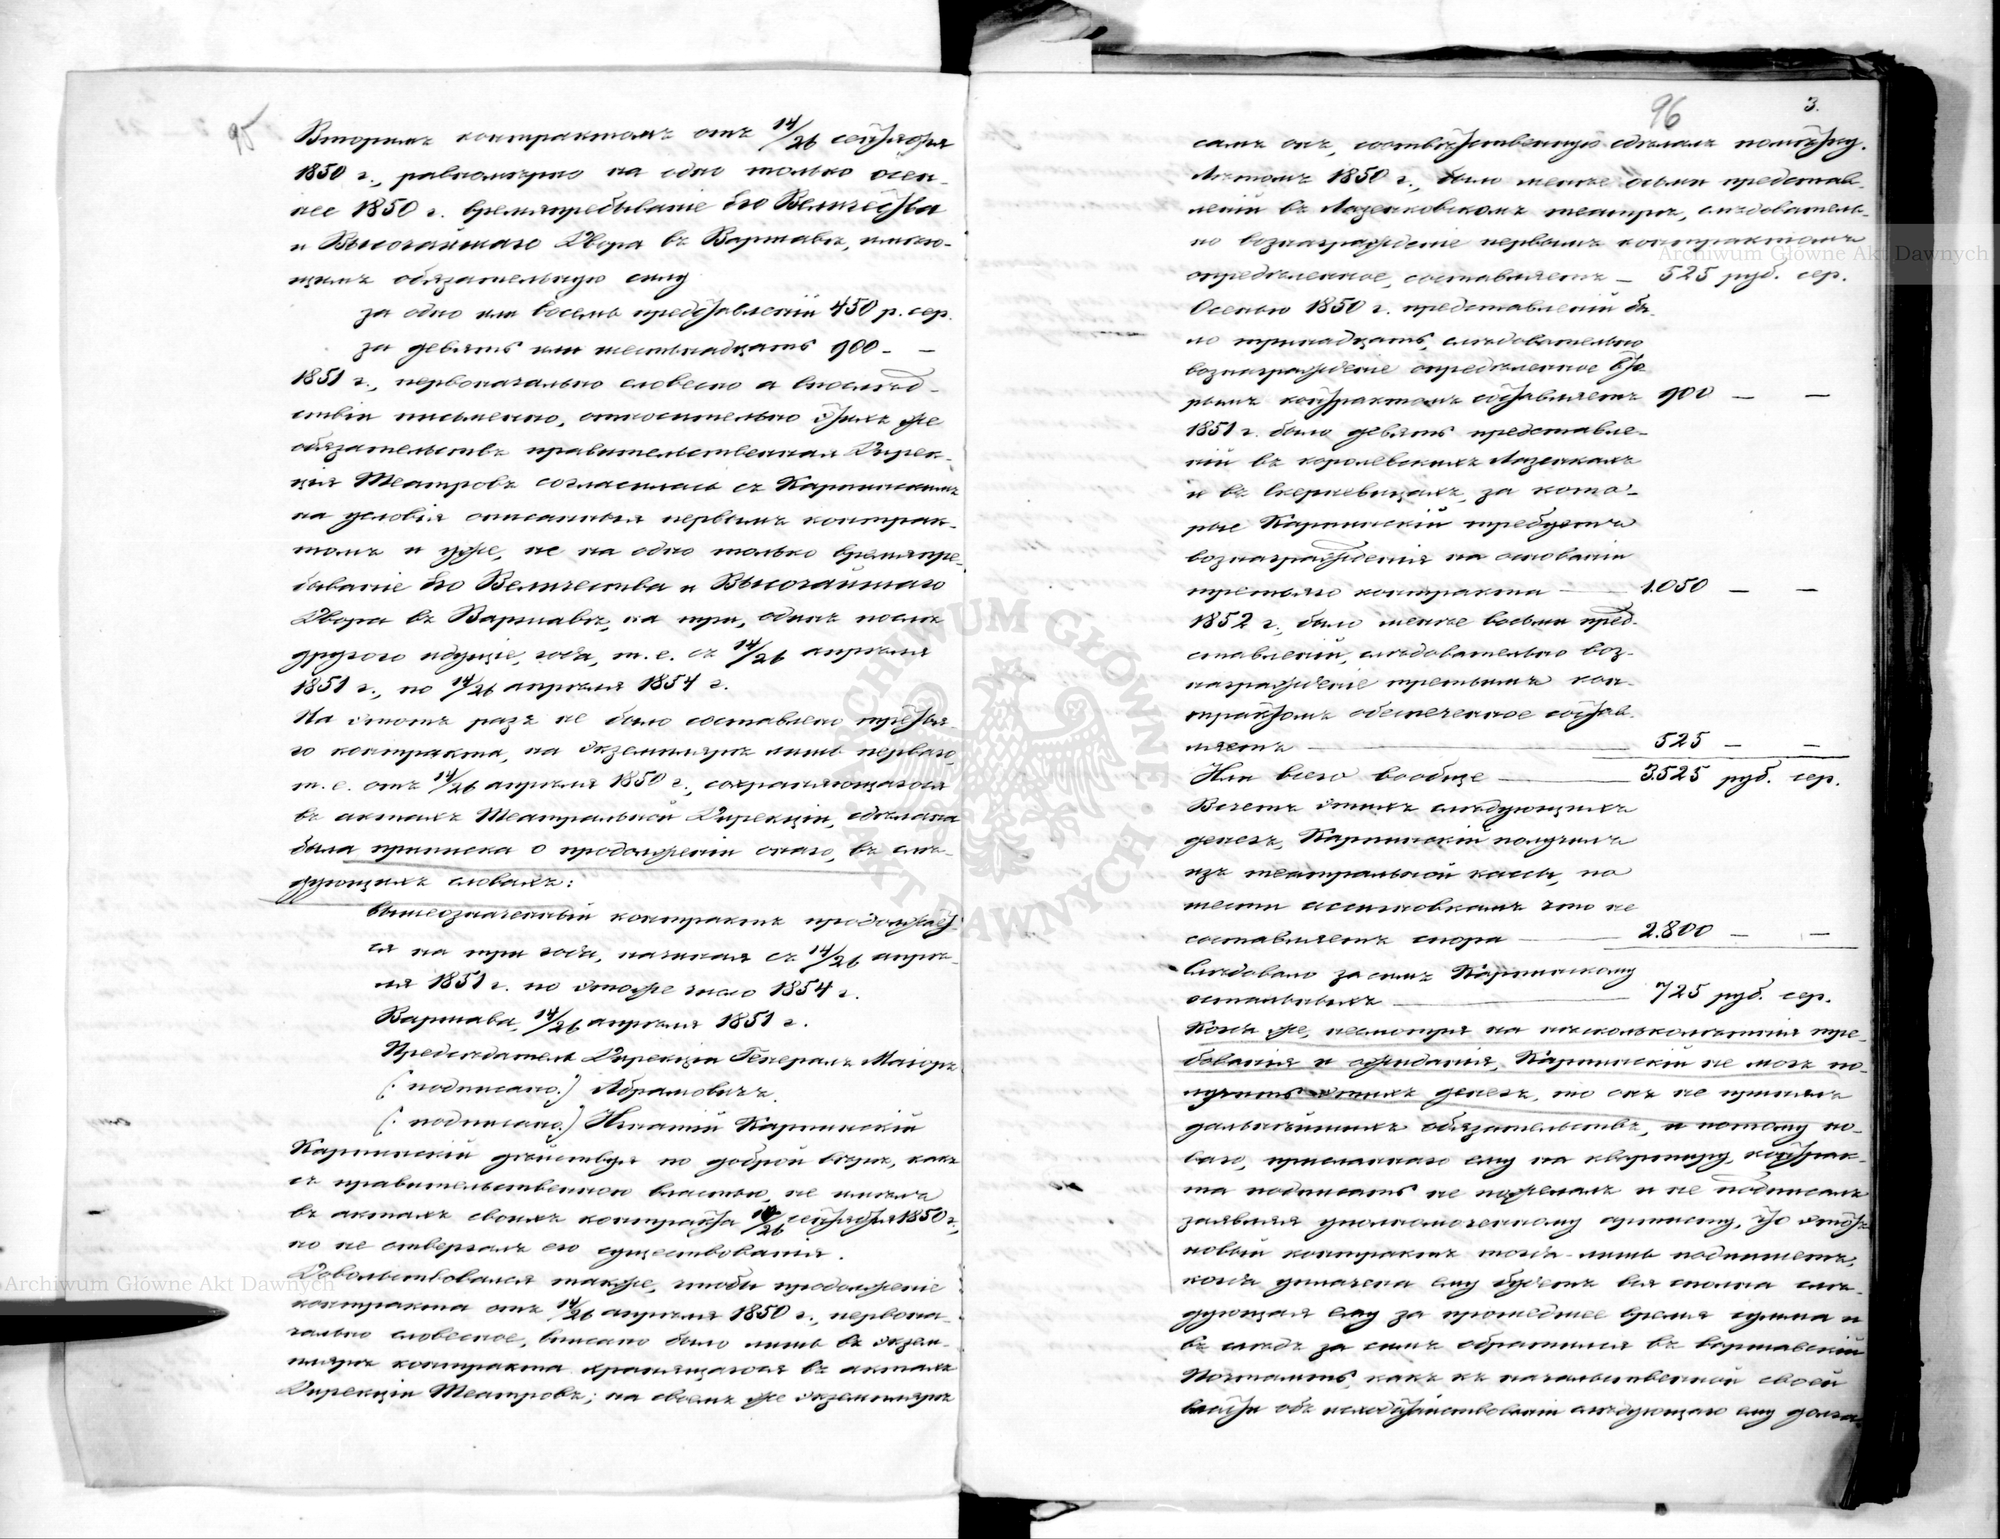 95
Вторымъ контрактомъ отъ 14/26 сентября
1850 г., равномѣрно на одно только осен-
нее 1850 г. времяпребываніе Его Величества
и Высочайшаго Двора въ Варшавѣ, имѣю-
щимъ обязательную силу
за одно или восемь представленій 450 р. сер.
за девять или шестнадцать 900 - —
1851 г., первоначально словесно а впослѣд-
ствіи письменно, относительно этихъ же
обязательствъ правительственная Дирек-
ція Театровъ согласилась съ Карпинскимъ
на условія описанныя первымъ контрак-
томъ и уже, не на одно только времяпре-
бываніе Его Величества и Высочайшаго
Двора въ Варшавѣ, на три, одинъ послѣ
другого идущіе, года, т. е. съ 14/26 апрѣля
1851 г., по 14/26 апрѣля 1854 г.
На этотъ разъ не было составлено третья-
го контракта, на экземплярѣ лишь перваго,
т. е. отъ 14/26 апрѣля 1850 г., сохраняющагося
въ актахъ Театральной Дирекціи, сдѣлана
была приписка о продолженіи онаго, въ слѣ-
дующихъ словахъ:
вышеозначенный контрактъ продолжает-
ся на три года, начиная съ 14/26 апрѣ-
ля 1851 г. по этоже число 1854 г.
Варшава, 14/26 апрѣля 1851 г.
Предсѣдатель Дирекціи Генералъ Маіоръ
(: подписано.) Абрамовичъ.
(: подписано.) Игнатій Карпинскій
Карпинскій дѣйствуя по доброй вѣрѣ, какъ
съ правительственною властью, не имѣлъ
въ актахъ своихъ контракта 14/26 сентября 1850 г.,
но не отвергалъ его существованія.
Довольствовался также, чтобы продолженіе
контракта отъ 14/26 апрѣля 1850 г., первона-
чально словесное, вписано было лишь въ экзем-
плярѣ контракта хранящагося въ актахъ
Дирекціи Театровъ; на своемъ же экземплярѣ
96
3.
самъ онъ, соотвѣтственную сдѣлалъ помѣтку.
Лѣтомъ 1850 г., было менѣе осьми представ-
леній въ Лазенковскомъ театрѣ, слѣдователь-
но вознагражденіе первымъ контрактомъ
опредѣленное, составляетъ — 525 руб. сер.
Осенью 1850 г. представленій бы-
ло тринадцать, слѣдовательно
вознагражденіе опредѣленное вто-
рымъ контрактомъ составляетъ 900 — —
1851 г. было девять представле-
ній въ королевскихъ Лазенкахъ
и въ Скерневицахъ, за кото-
рые Карпинскій требуетъ
вознагражденія на основаніи
третьяго контракта — 1.050 — —
1852 г., было менѣе восьми пред-
ставленій, слѣдовательно воз-
награжденіе третьимъ кон-
трактомъ обеспеченное состав-
ляетъ — 525 — —
Или всего вообще — 3.525 руб. сер.
Всчетъ этихъ слѣдующихъ
денегъ, Карпинскій получилъ
изъ театральной кассы, по
шести ассигновкамъ что не
составляетъ спора — 2.800 — —
Слѣдовало за симъ Карпинскому
остальныхъ — 725 руб. сер.
Когда же, несмотря на нѣскольколѣтнія тре-
бованія и ожиданія, Карпинскій не могъ по-
лучить этихъ денегъ, то онъ не принялъ
дальнѣйшихъ обязательствъ, и потому но-
ваго, присланнаго ему на квартиру, контрак-
та подписать не пожелалъ и не подписалъ
заявляя уполномоченному артисту, что этотъ
новый контрактъ тогда лишь подпишетъ,
когда уплачена ему будетъ вся сполна слѣ-
дующая ему за прошедшее время сумма и
въ слѣдъ за симъ обратился въ варшавскій
Почтамтъ, какъ къ начальственной своей
власти объ исходатайствованіи слѣдующаго ему долга.
Archiwum Główne Akt Dawnych
Archiwum Główne Akt Dawnych
ARCHIWUM GŁÓWNE AKT DAWNYCH